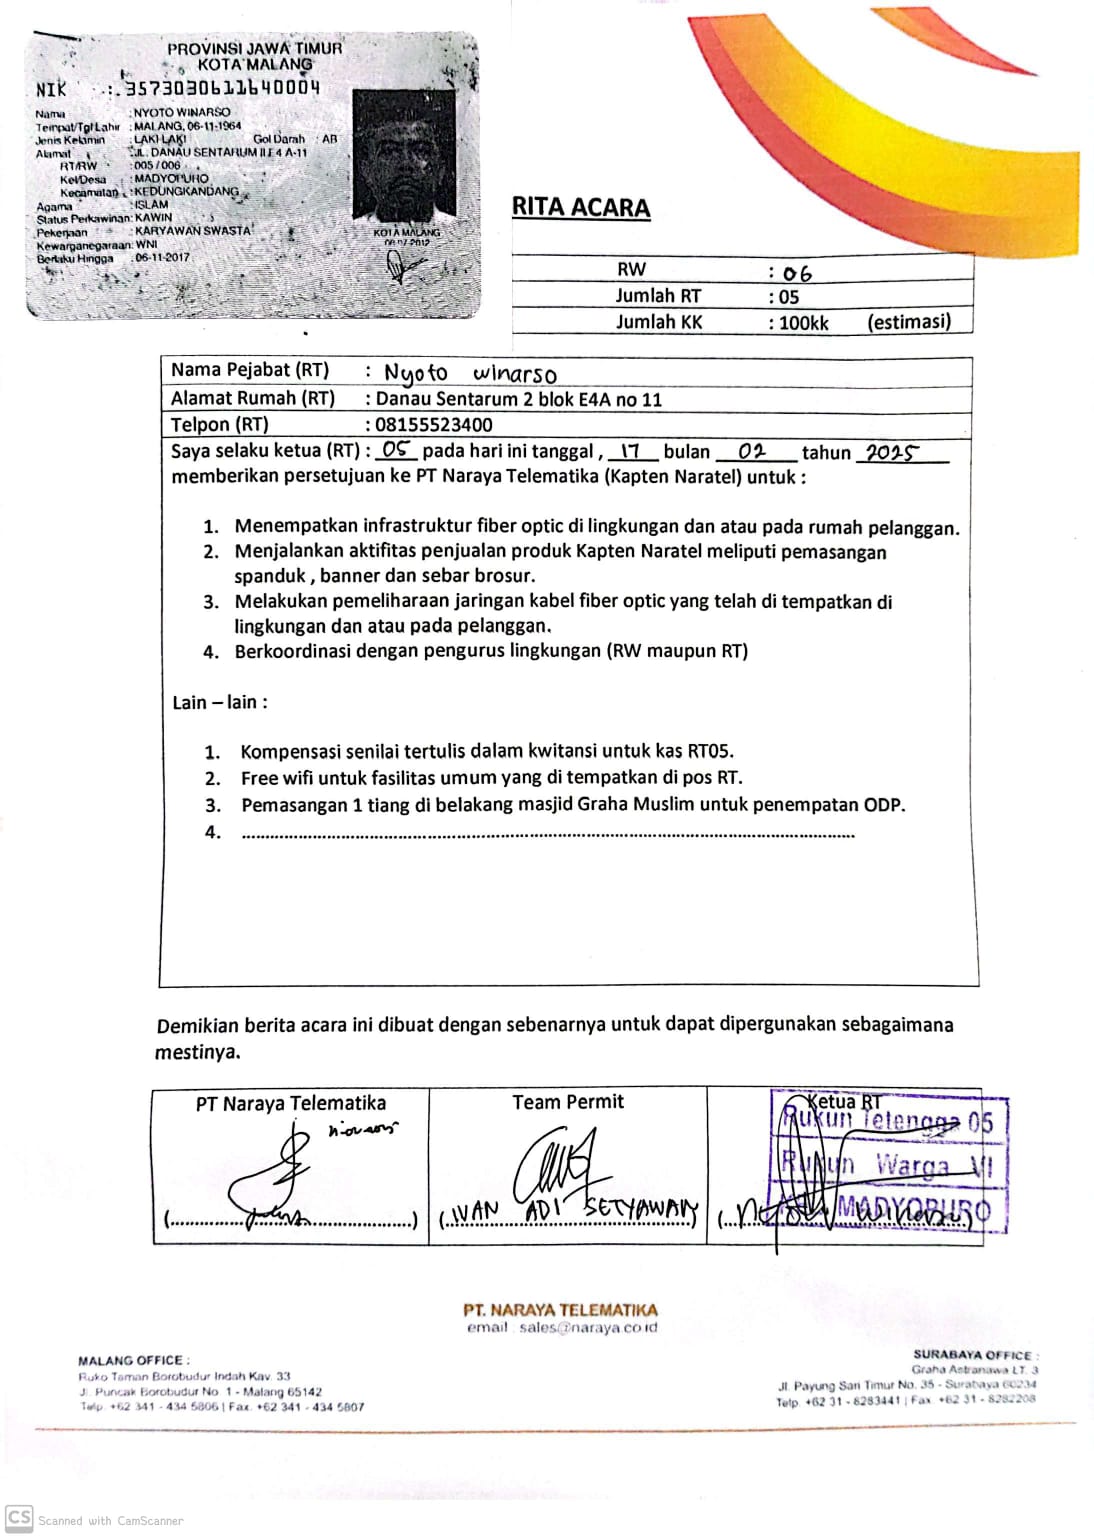 PROVINSI JAWA TIMUR
KOTA MALANG
NIK : 3573030611640004
Nama : NYOTO WINARSO
Tempat/Tgl Lahir : MALANG, 06-11-1964
Jenis Kelamin : LAKI-LAKI Gol Darah : AB
Alamat : JL. DANAU SENTARUM II E4 A-11
RT/RW : 005 / 006
Kel/Desa : MADYOPURO
Kecamatan : KEDUNGKANDANG
Agama : ISLAM
Status Perkawinan: KAWIN
Pekerjaan : KARYAWAN SWASTA
Kewarganegaraan: WNI
Berlaku Hingga : 06-11-2017
KOTA MALANG
08-07-2012
RITA ACARA
RW : 06
Jumlah RT : 05
Jumlah KK : 100kk (estimasi)
Nama Pejabat (RT) : Nyoto winarso
Alamat Rumah (RT) : Danau Sentarum 2 blok E4A no 11
Telpon (RT) : 08155523400
Saya selaku ketua (RT) : 05 pada hari ini tanggal , 17 bulan 02 tahun 2025
memberikan persetujuan ke PT Naraya Telematika (Kapten Naratel) untuk :
1. Menempatkan infrastruktur fiber optic di lingkungan dan atau pada rumah pelanggan.
2. Menjalankan aktifitas penjualan produk Kapten Naratel meliputi pemasangan
spanduk , banner dan sebar brosur.
3. Melakukan pemeliharaan jaringan kabel fiber optic yang telah di tempatkan di
lingkungan dan atau pada pelanggan.
4. Berkoordinasi dengan pengurus lingkungan (RW maupun RT)
Lain – lain :
1. Kompensasi senilai tertulis dalam kwitansi untuk kas RT05.
2. Free wifi untuk fasilitas umum yang di tempatkan di pos RT.
3. Pemasangan 1 tiang di belakang masjid Graha Muslim untuk penempatan ODP.
4. ........................................................................
Demikian berita acara ini dibuat dengan sebenarnya untuk dapat dipergunakan sebagaimana
mestinya.
PT Naraya Telematika Team Permit Ketua RT
Rukun Tetangga 05
Rukun Warga VI
MADYOPURO
(IVAN ADI SETYAWAN)
PT. NARAYA TELEMATIKA
email : sales@naraya.co.id
MALANG OFFICE :
Ruko Taman Borobudur Indah Kav. 33
Jl. Puncak Borobudur No. 1 - Malang 65142
Telp. +62 341 - 434 5806 | Fax. +62 341 - 434 5807
SURABAYA OFFICE :
Graha Astranawa LT. 3
Jl. Payung Sari Timur No. 35 - Surabaya 60234
Telp. +62 31 - 8283441 | Fax. +62 31 - 8282208
CS Scanned with CamScanner